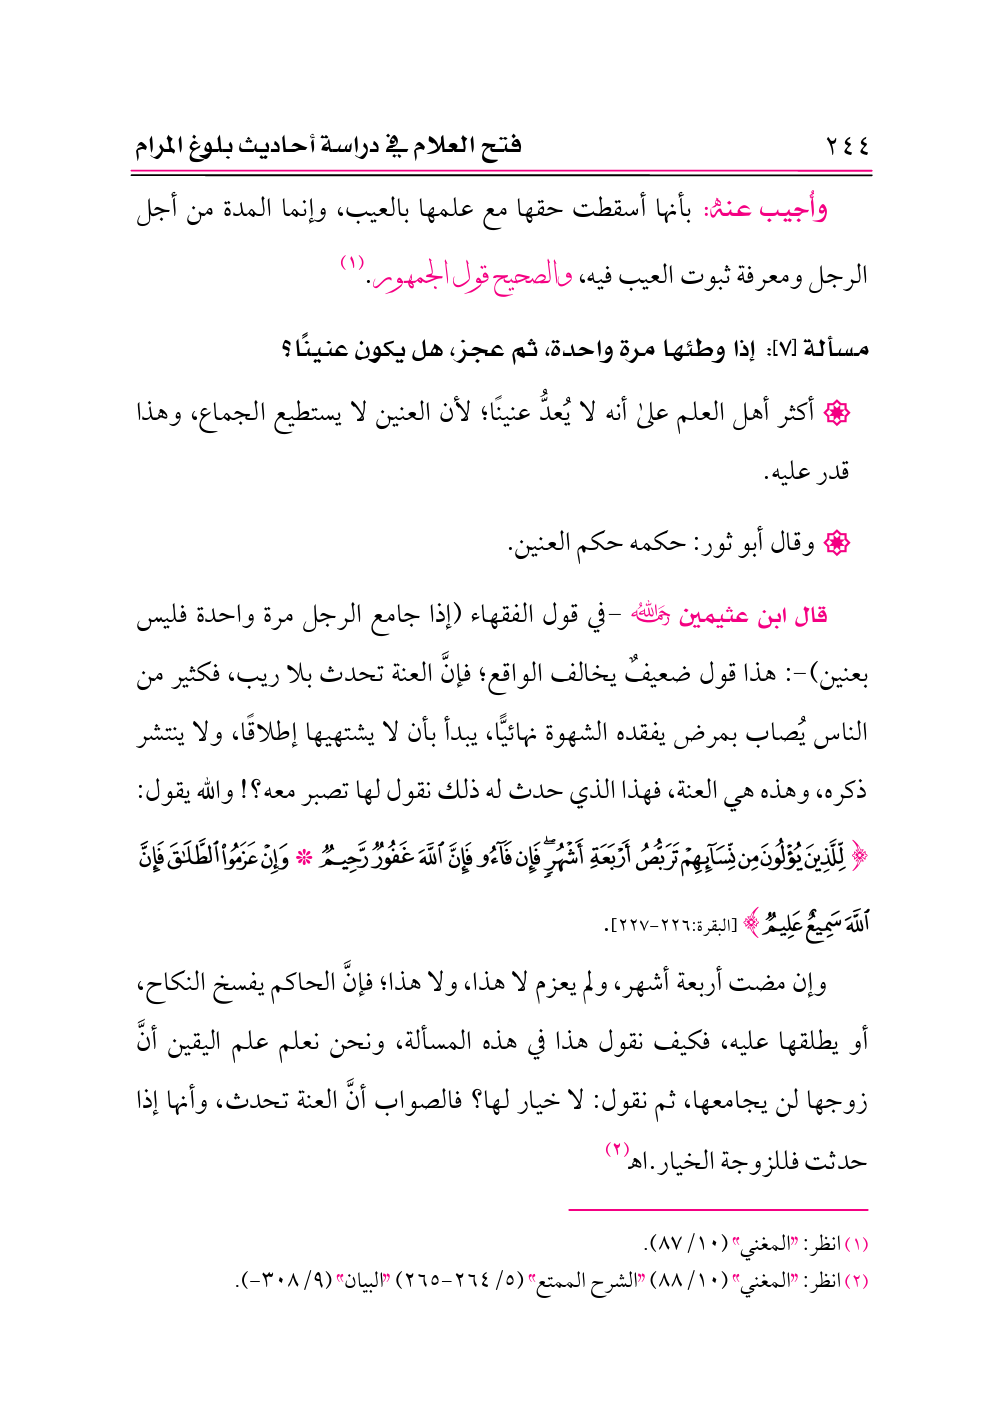 ٢٤٤ فتح العلام في دراسة أحاديث بلوغ المرام
وأُجيب عنه: بأنها أسقطت حقها مع علمها بالعيب، وإنما المدة من أجل
الرجل ومعرفة ثبوت العيب فيه، والصحيح قول الجمهور.(١)
مسألة [٧]: إذا وطئها مرة واحدة، ثم عجز، هل يكون عنينًا؟
أكثر أهل العلم على أنه لا يُعدُّ عنينًا؛ لأن العنين لا يستطيع الجماع، وهذا
قدر عليه.
وقال أبو ثور: حكمه حكم العنين.
قال ابن عثيمين رحمه الله -في قول الفقهاء (إذا جامع الرجل مرة واحدة فليس
بعنين)-: هذا قول ضعيفٌ يخالف الواقع؛ فإنَّ العنة تحدث بلا ريب، فكثير من
الناس يُصاب بمرض يفقده الشهوة نهائيًّا، يبدأ بأن لا يشتهيها إطلاقًا، ولا ينتشر
ذكره، وهذه هي العنة، فهذا الذي حدث له ذلك نقول لها تصبر معه؟! والله يقول:
﴿لِّلَّذِينَ يُؤۡلُونَ مِن نِّسَآئِهِمۡ تَرَبُّصُ أَرۡبَعَةِ أَشۡهُرٖۖ فَإِن فَآءُو فَإِنَّ ٱللَّهَ غَفُورٞ رَّحِيمٞ * وَإِنۡ عَزَمُواْ ٱلطَّلَٰقَ فَإِنَّ
ٱللَّهَ سَمِيعٌ عَلِيمٞ﴾ [البقرة:٢٢٦-٢٢٧].
وإن مضت أربعة أشهر، ولم يعزم لا هذا، ولا هذا؛ فإنَّ الحاكم يفسخ النكاح،
أو يطلقها عليه، فكيف نقول هذا في هذه المسألة، ونحن نعلم علم اليقين أنَّ
زوجها لن يجامعها، ثم نقول: لا خيار لها؟ فالصواب أنَّ العنة تحدث، وأنها إذا
حدثت فللزوجة الخيار.اهـ(٢)
(١) انظر: "المغني" (١٠/ ٨٧).
(٢) انظر: "المغني" (١٠/ ٨٨) "الشرح الممتع" (٥/ ٢٦٤-٢٦٥) "البيان" (٩/ ٣٠٨-).